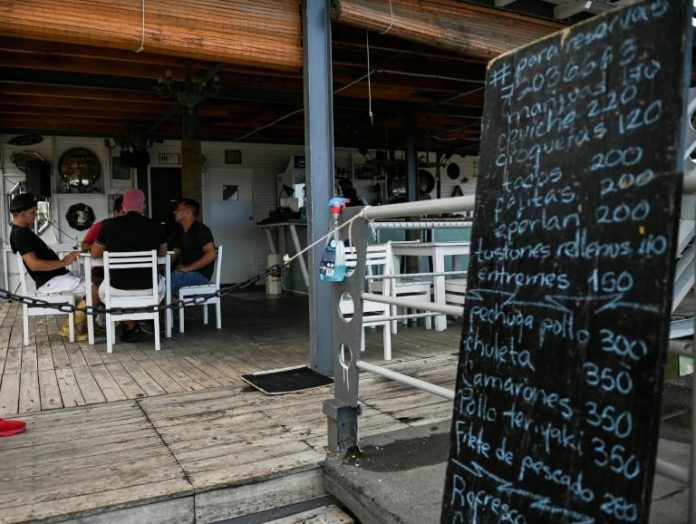 #para reservas
72036643
manjuas 170
ceviche 220
croquetas 120
tacos 200
fajitas 200
eperlan 200
tustones rellenos 110
entremes 150
pechuga pollo 300
chuleta 350
Camarones 350
Pollo teriyaki 350
Filete de pescado 280
Refresco